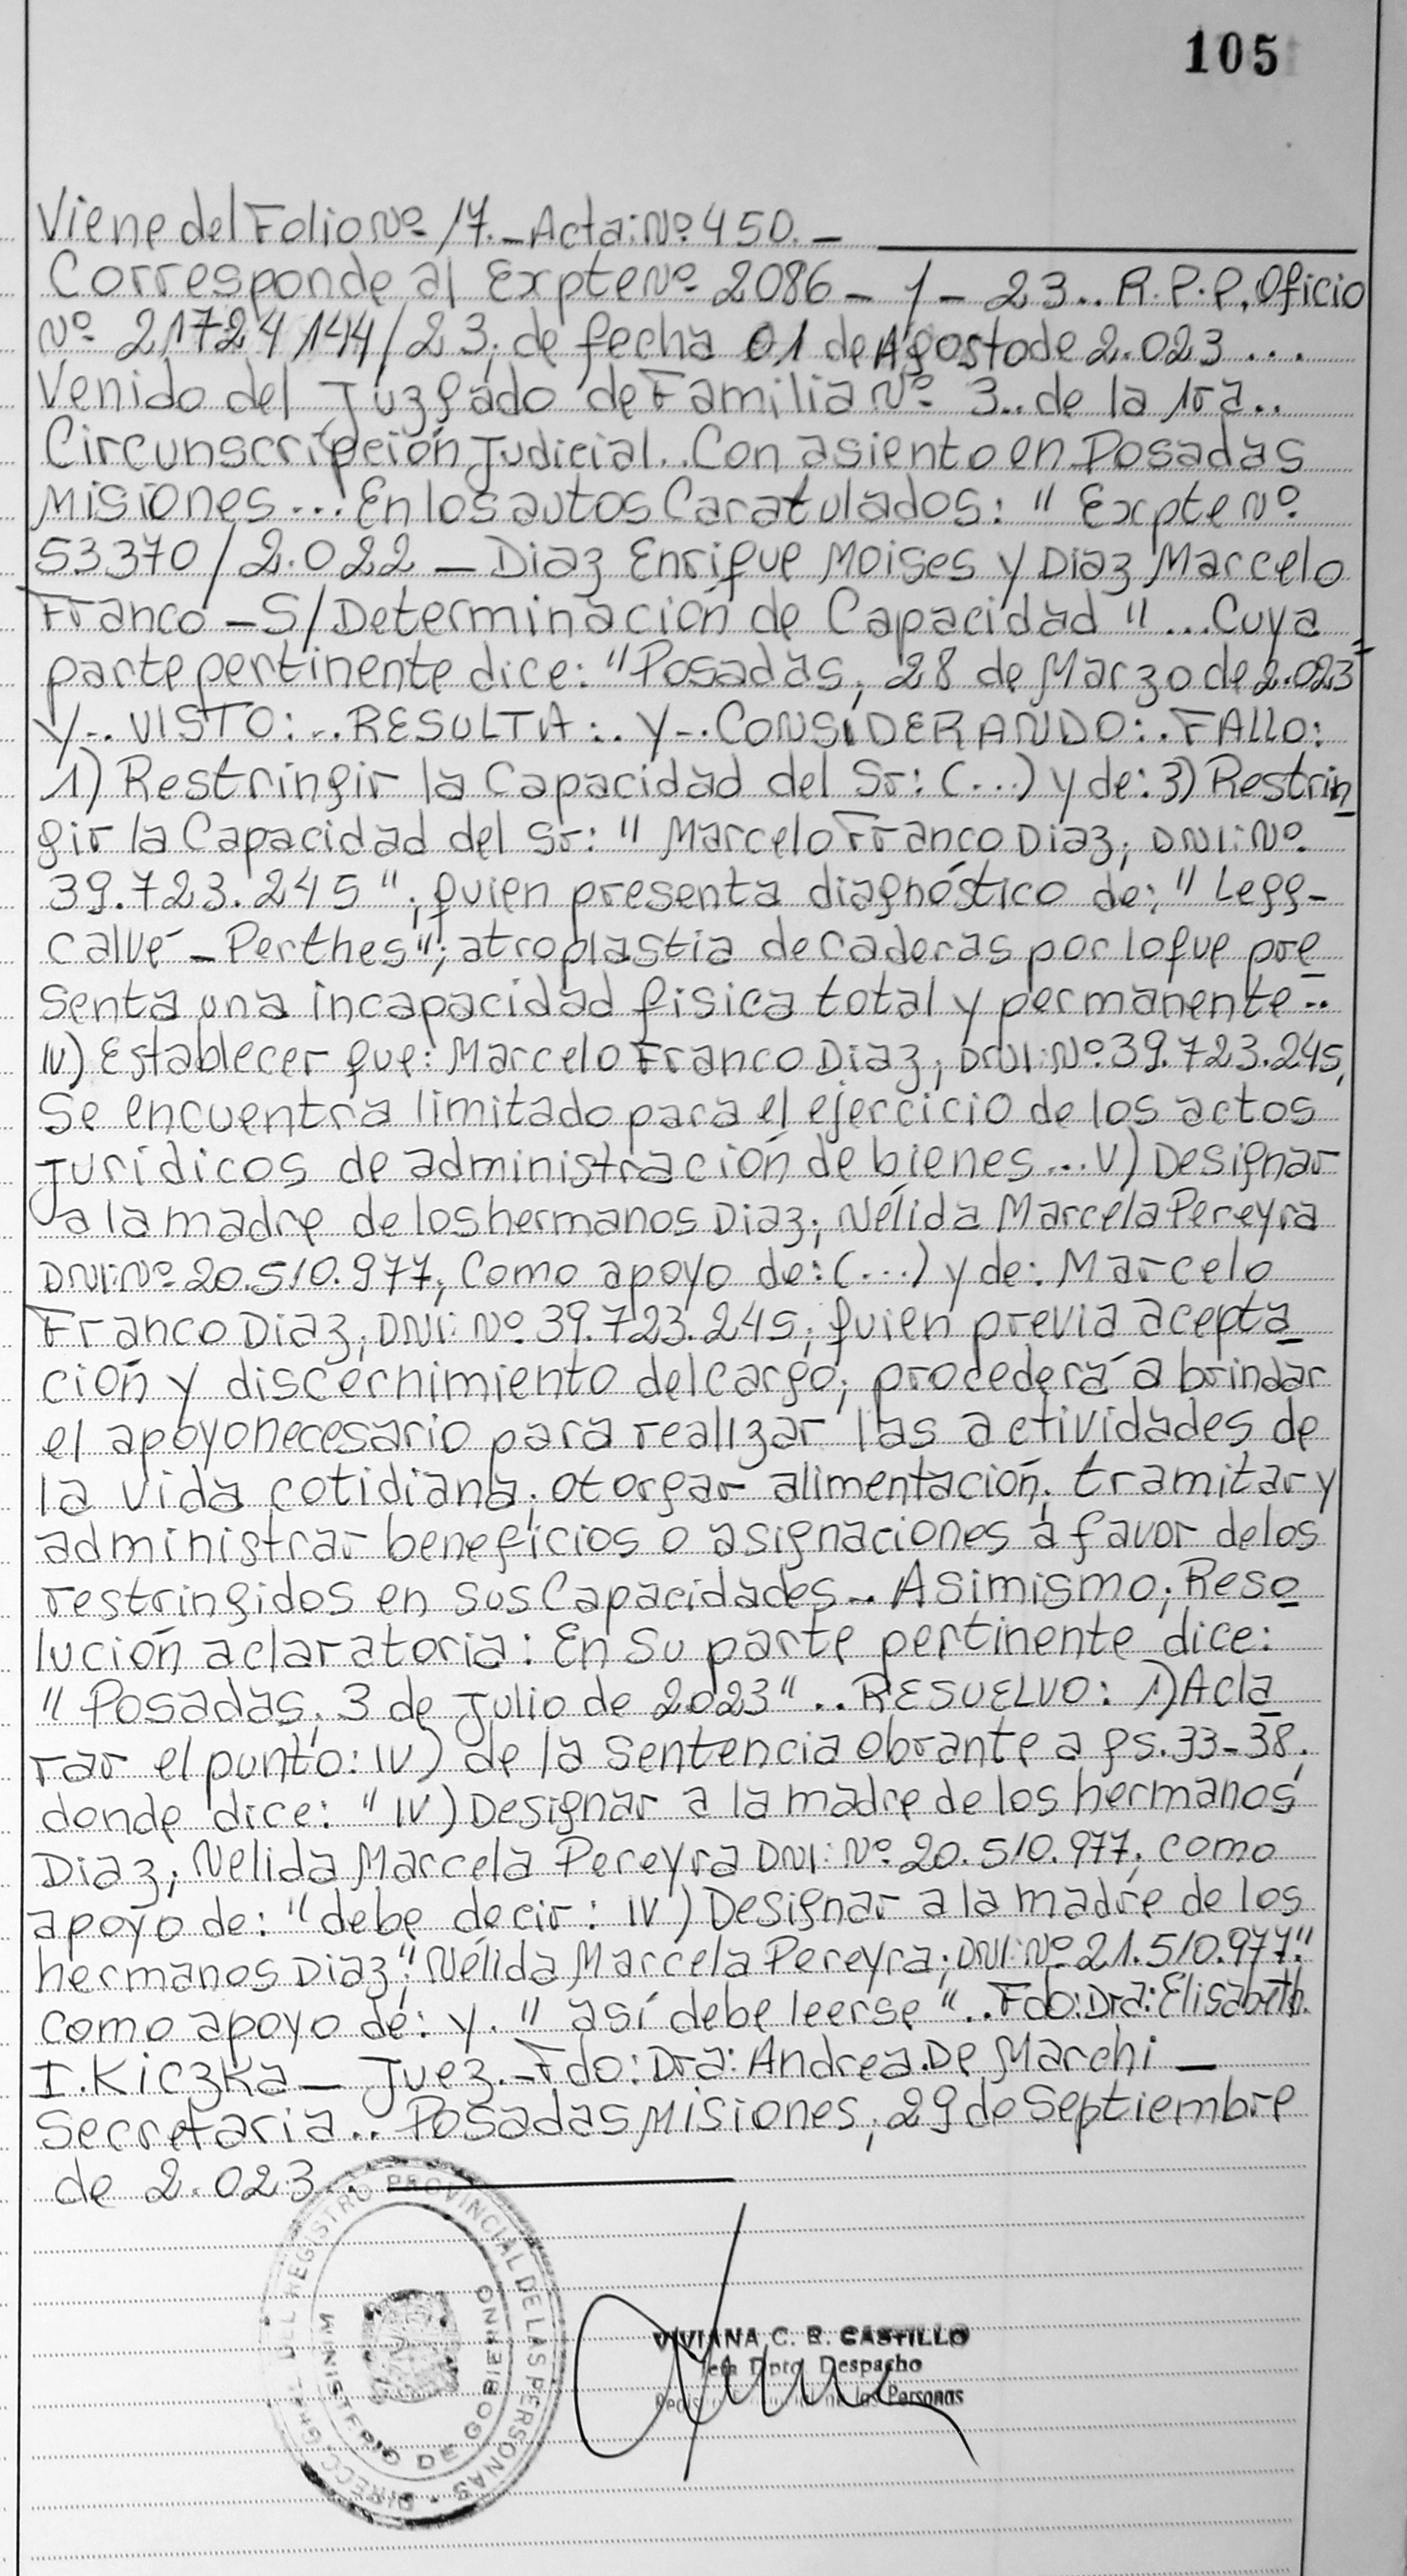 105
Viene del Folio Nº 17.- Acta: Nº 450.-
Corresponde al Expte Nº 2086 - 1 - 23.. R.P.P. Oficio
Nº 21724144/23; de fecha 01 de Agosto de 2.023 ...
Venido del Juzgado de Familia Nº 3.. de la 1ra..
Circunscripción Judicial.. Con asiento en Posadas
Misiones... En los autos Caratulados: " Expte Nº
53370/2.022 - Diaz Enrique Moises y Diaz Marcelo
Franco - S/Determinación de Capacidad "... Cuya
parte pertinente dice: "Posadas, 28 de Marzo de 2.023
Y-.. VISTO:... RESULTA:. Y-. CONSIDERANDO:. FALLO:
1) Restringir la Capacidad del Sr: (...) y de: 3) Restrin
gir la Capacidad del Sr: " Marcelo Franco Diaz; DNI: Nº
39.723.245 "; quien presenta diagnóstico de: " Legg-
Calvé - Perthes"; atroplastia de Caderas por lo que pre
senta una incapacidad física total y permanente-..
IV) Establecer que: Marcelo Franco Diaz; DNI: Nº 39.723.245,
Se encuentra limitado para el ejercicio de los actos
Jurídicos de administración de bienes... V) Designar
a la madre de los hermanos Diaz; Nélida Marcela Pereyra
DNI: Nº 20.510.977; Como apoyo de: (...) y de: Marcelo
Franco Diaz; DNI: Nº 39.723.245; quien previa acepta
ción y discernimiento del cargo; procederá a brindar
el apoyo necesario para realizar las actividades de
la vida cotidiana; otorgar alimentación; tramitar y
administrar beneficios o asignaciones a favor de los
restringidos en sus Capacidades-. Asimismo; Reso
lución aclaratoria: En su parte pertinente dice:
" Posadas; 3 de Julio de 2.023 ".. RESUELVO: 1) Acla
rar el punto: IV) de la Sentencia obrante a fs. 33-38;
donde dice: " IV) Designar a la madre de los hermanos
Diaz; Nelida Marcela Pereyra DNI: Nº 20.510.977; como
apoyo de: " debe decir: IV) Designar a la madre de los
hermanos Diaz"; Nélida Marcela Pereyra; DNI: Nº 21.510.977."
Como apoyo de: y. " así debe leerse ".. Fdo: Dra: Elisabeth.
I. Kiczka - Juez.- Fdo: Dra: Andrea De Marchi -
Secretaria.. Posadas Misiones; 29 de Septiembre
de 2.023..
REGISTRO PROVINCIAL DE LAS PERSONAS
MINISTERIO DE GOBIERNO
VIVIANA C. B. CASTILLO
Dpto Despacho
de las Personas